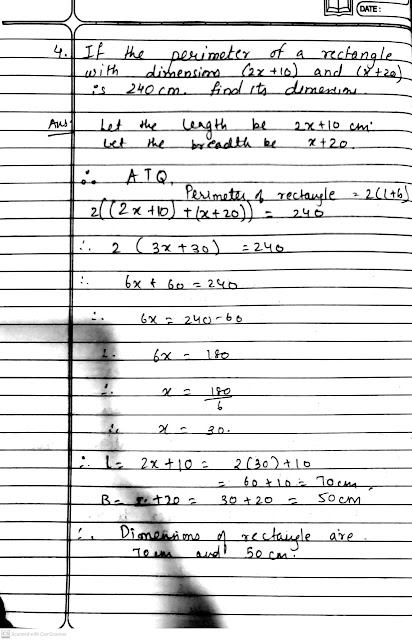 DATE:
4. If the perimeter of a rectangle
with dimensions (2x+10) and (x+20)
is 240 cm. find its dimensions.
Ans: Let the length be 2x+10 cm
Let the breadth be x+20.
∴ ATQ,
Perimeter of rectangle = 2(l+b)
2((2x+10) + (x+20)) = 240
∴ 2 (3x+30) = 240
∴ 6x + 60 = 240
∴ 6x = 240-60
∴ 6x = 180
∴ x = 180/6
∴ x = 30.
∴ L = 2x+10 = 2(30)+10
= 60+10 = 70cm,
B = x+20 = 30+20 = 50cm
∴ Dimensions of rectangle are
70 cm and 50 cm.
CS Scanned with CamScanner